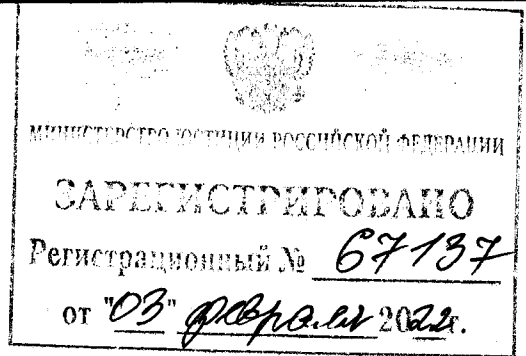 МИНИСТЕРСТВО ЮСТИЦИИ РОССИЙСКОЙ ФЕДЕРАЦИИ
ЗАРЕГИСТРИРОВАНО
Регистрационный № 67137
от "03" февраля 2022г.